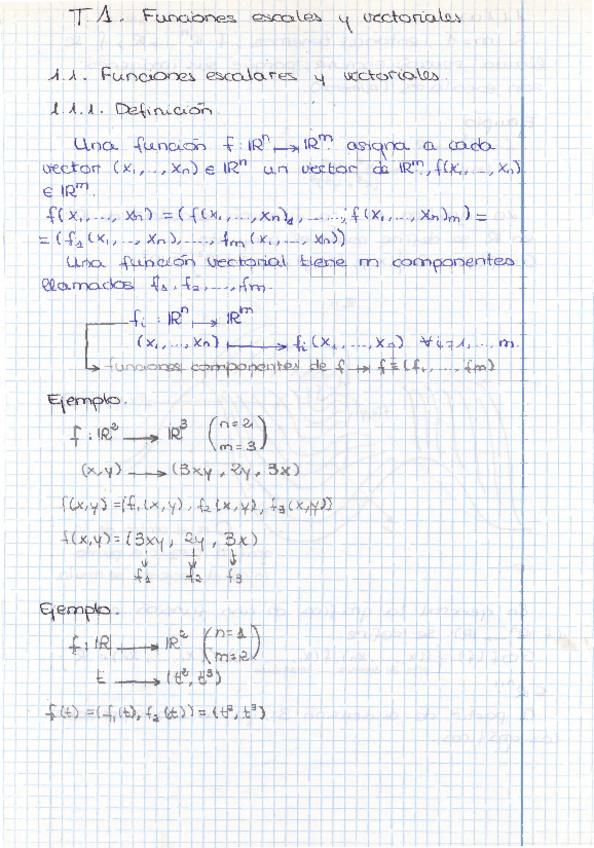 T.1. Funciones escales y vectoriales
1.1. Funciones escalares y vectoriales.
1.1.1. Definición
Una función f: ℝⁿ → ℝᵐ asigna a cada
vector (x₁,...,xₙ) ∈ ℝⁿ un vector de ℝᵐ, f(x₁,...,xₙ)
∈ ℝᵐ.
f(x₁,...,xₙ) = (f(x₁,...,xₙ)₁,......, f(x₁,...,xₙ)ₘ) =
= (f₁(x₁,...,xₙ),...., fₘ(x₁,...,xₙ))
Una función vectorial tiene m componentes
llamados f₁, f₂,...,fₘ.
fᵢ : ℝⁿ → ℝᵐ
(x₁,...,xₙ) ↦ fᵢ(x₁,...,xₙ) ∀ i=1,...,m.
funciones componentes de f → f ≡ (f₁,...,fₘ)
Ejemplo.
f: ℝ² → ℝ³ (n=2, m=3)
(x,y) → (3xy, 2y, 3x)
f(x,y) = (f₁(x,y), f₂(x,y), f₃(x,y))
f(x,y) = (3xy, 2y, 3x)
f₁ f₂ f₃
Ejemplo.
f: ℝ → ℝ² (n=1 m=2)
t → (t², t³)
f(t) = (f₁(t), f₂(t)) = (t², t³)